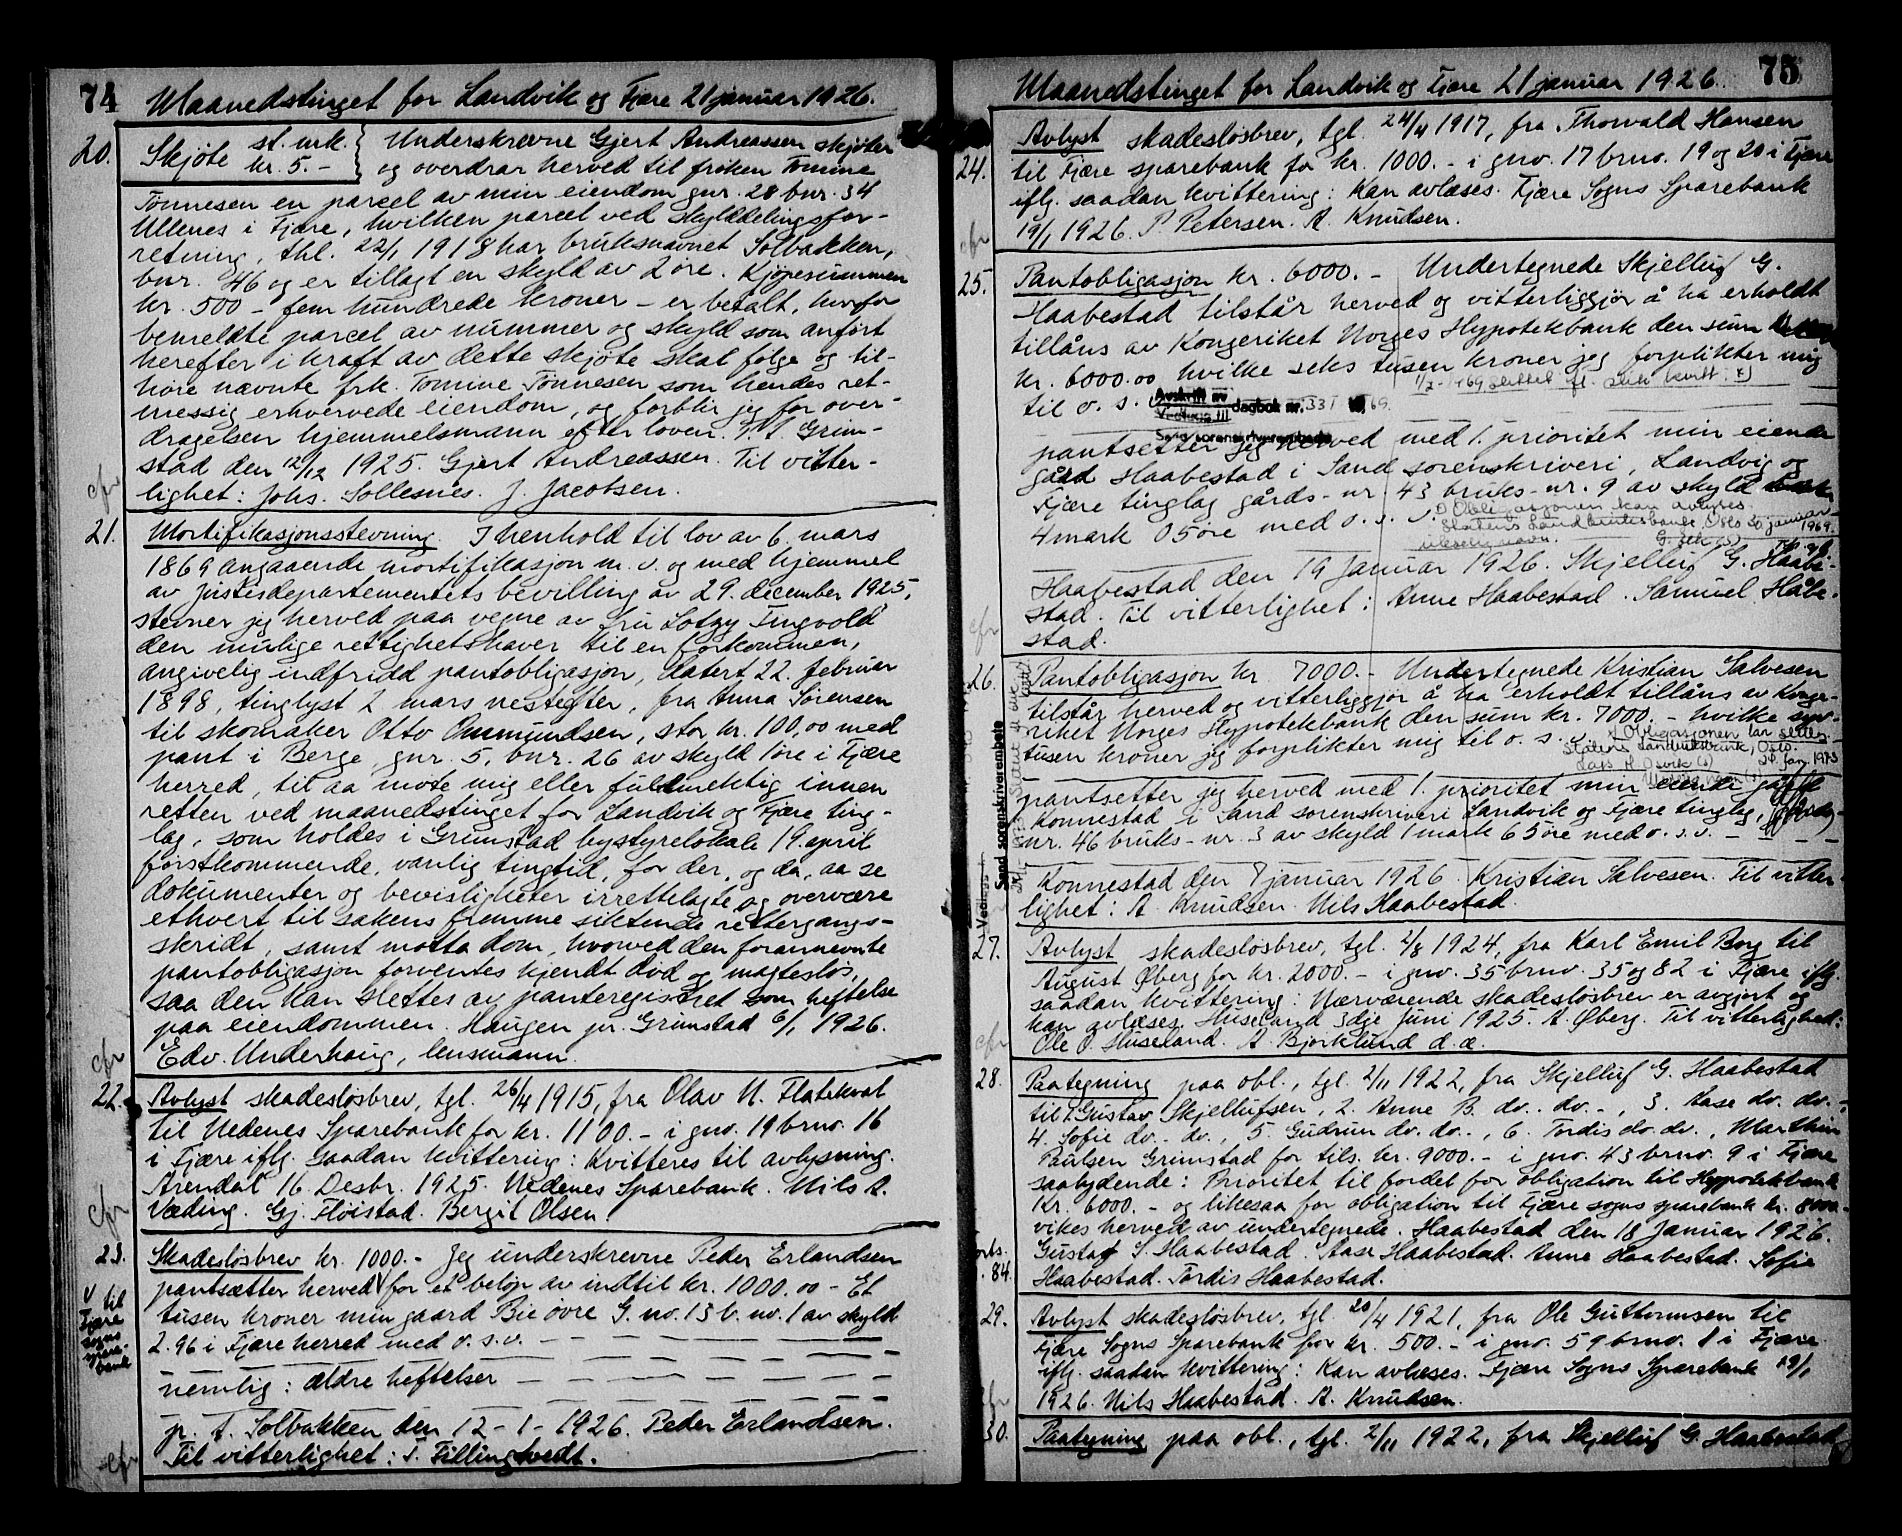 74
Maanedstinget for Landvik og Fjære 21 januar 1926.
20.
Skjøte st. mrk. kr. 5.-
Underskrevne Gjert Andreassen skjøter
og overdrar herved til frøken Tomine
Tønnesen en parcel av min eiendom gnr. 28 bnr. 34
Ullenes i Fjære, hvilken parcel ved skylddelingsfor-
retning, thl. 22/1 1918 har bruksnavnet Solbakken,
bnr. 46 og er tillagt en skyld av 2 øre. Kjøpesummen
kr. 500 - fem hundrede kroner - er betalt, hvorfor
bemeldte parcel av nummer og skyld som anført
herefter i kraft av dette skjøte skal følge og til-
høre nævnte frk. Tomine Tønnesen som hendes ret-
messig erhvervede eiendom, og forblir jeg for over-
dragelsen hjemmelsmann efter loven. P.t. Grim-
stad den 12/12 1925. Gjert Andreassen. Til vitter-
lighet: Johs. Sollesnes. J. Jacobsen.
cfr
21.
Mortifikasjonsstevning. I henhold til lov av 6. mars
1869 angaaende mortifikasjon m. v. og med hjemmel
av Justisdepartementets bevilling av 29. december 1925,
stevner jeg herved paa vegne av fru Lotzy Tingvold
den mulige rettighetshaver til en forkommen,
angivelig indfridd pantobligasjon, datert 22. februar
1898, tinglyst 2 mars nestefter, fra Anna Sørensen
til skomaker Otto Ommundsen, stor kr. 100,00 med
pant i Berge, gnr. 5, bnr. 26 av skyld 1 øre i Fjære
herred, til aa møte mig eller fuldmektig innen
retten ved maanedstinget for Landvik og Fjære ting-
lag, som holdes i Grimstad bystyrelokale 19. april
førstkommende, vanlig tingtid, for der, og da, aa se
dokumenter og bevisligheter irettelagte og overvære
ethvert til sakens fremme siktende rettergangs-
skridt, samt motta dom, hvorved den forannevnte
pantobligasjon forventes kjendt død og magtesløs,
saa den kan slettes av panteregistret som heftelse
paa eiendommen. Haugen pr. Grimstad 6/1 1926.
Edv. Underhaug, lensmann.
cfr
22.
Avlyst skadesløsbrev, tgl. 26/4 1915, fra Olav N. Flatekval
til Nedenes Sparebank for kr. 1100.- i gno. 19 brno. 16
i Fjære iflg. saadan kvittering: Kvitteres til avlysning.
Arendal 16 Desbr. 1925. Nedenes Sparebank. Nils A.
Væding. Gj. Fløistad. Bergit Olsen.
cfr
23.
Skadesløsbrev kr. 1000.- Jeg underskrevne Peder Erlandsen
pantsætter herved for et beløp av indtil kr. 1000.00 - Et
tusen kroner min gaard Bie øvre G. no. 13 b. no. 1 av skyld
2.96 i Fjære herred med o. s. v.
V til
Fjære
sogns
spare-
bank
nemlig: ældre heftelser
p. t. Solbakken den 12-1-1926. Peder Erlandsen.
Til vitterlighet: T. Fillingtvedt.
cfr
75
Maanedstinget for Landvik og Fjære 21 januar 1926.
24.
Avlyst skadesløsbrev, tgl. 24/4 1917, fra Thorvald Hansen
til Fjære sparebank for kr. 1000.- i gno. 17 brno. 19 og 20 i Fjære
iflg. saadan kvittering: Kan avlæses. Fjære Sogns Sparebank
19/1 1926. P Petersen. A. Knudsen.
cfr
25.
Pantobligasjon kr. 6000.- Undertegnede Skjelluf G.
Haabestad tilstår herved og vitterliggjør å ha erholdt
tillåns av Kongeriket Norges Hypotekbank den sum
kr. 6000.00 hvilke seks tusen kroner jeg forplikter mig
til o. s. v.
Avskrift av
Vedlegg til dagbok nr. 331 69.
Sand sorenskriverembede
pantsetter jeg herved med 1. prioritet min eiende
gård Haabestad i Sand sorenskriveri, Landvig og
Fjære tinglag gårds-nr. 43 bruks-nr. 9 av skyld
4 mark 05 øre med o. s. v.
Obligasjonen kan avlyses.
Statens Landbruksbank, Oslo 30 januar
1969.
Haabestad den 19 Januar 1926. Skjelluf G. Haabe-
stad. Til vitterlighet: Anne Haabestad. Samuel Håbe-
stad.
cfr
26.
Pantobligasjon kr. 7000.- Undertegnede Kristian Salvesen
tilstår herved og vitterliggjør å ha erholdt tillåns av Konge-
riket Norges Hypotekbank den sum kr. 7000.- hvilke syv-
tusen kroner jeg forplikter mig til o. s. v.
Obligasjonen kan slettes.
Statens Landbruksbank, Oslo.
24. jan. 1973
Sand sorenskriverembete
pantsetter jeg herved med 1. prioritet min eiende gård
Konnestad i Sand sorenskriveri Landvik og Fjære tinglag, gårds-
nr. 46 bruks-nr. 3 av skyld 1 mark 65 øre med o. s. v.
Konnestad den 7 januar 1926. Kristian Salvesen. Til vitter-
lighet: A. Knudsen. Nils Haabestad.
27.
Avlyst skadesløsbrev, tgl. 2/8 1924, fra Karl Emil Borg til
August Øberg for kr. 2000.- i gno. 35 brno. 35 og 82 i Fjære iflg.
saadan kvittering: Nærværende skadesløsbrev er avgjort og
kan avlæses. Huseland 3die Juni 1925. A. Øberg. Til vitterlighed:
Ole O. Huseland. A Bjorklund d.æ.
cfr
28.
Paategning paa obl., tgl. 2/11 1922, fra Skjelluf G. Haabestad
til 1. Gustav Skjellufsen, 2. Anne B. do. do.-, 3. Aase do. do.-,
4. Sofie do.- do., 5. Gudrun do. do., 6. Tordis do. do., Marthin
Paulsen Grimstad for tils. kr. 9000.- i gno. 43 brno. 9 i Fjære
saalydende: Prioritet til fordel for obligation til Hypotekbank
Kr. 6000.- og likesaa for obligation til Fjære sogns sparebank kr. 8000.-
vikes herved av undertegnede. Haabestad den 18 Januar 1926.
Gustav S. Haabestad. Aase Haabestad. Anne Haabestad. Sofie
Haabestad. Tordis Haabestad.
84.
29.
Avlyst skadesløsbrev, tgl. 20/4 1921, fra Ole Guttormsen til
Fjære Sogns Sparebank for kr. 500.- i gno. 59 brno. 1 i Fjære
iflg. saadan kvittering: Kan avlæses. Fjære Sogns Sparebank 19/1
1926. Nils Haabestad. A. Knudsen.
cfr
30.
Paategning paa obl., tgl. 2/11 1922, fra Skjelluf G. Haabestad